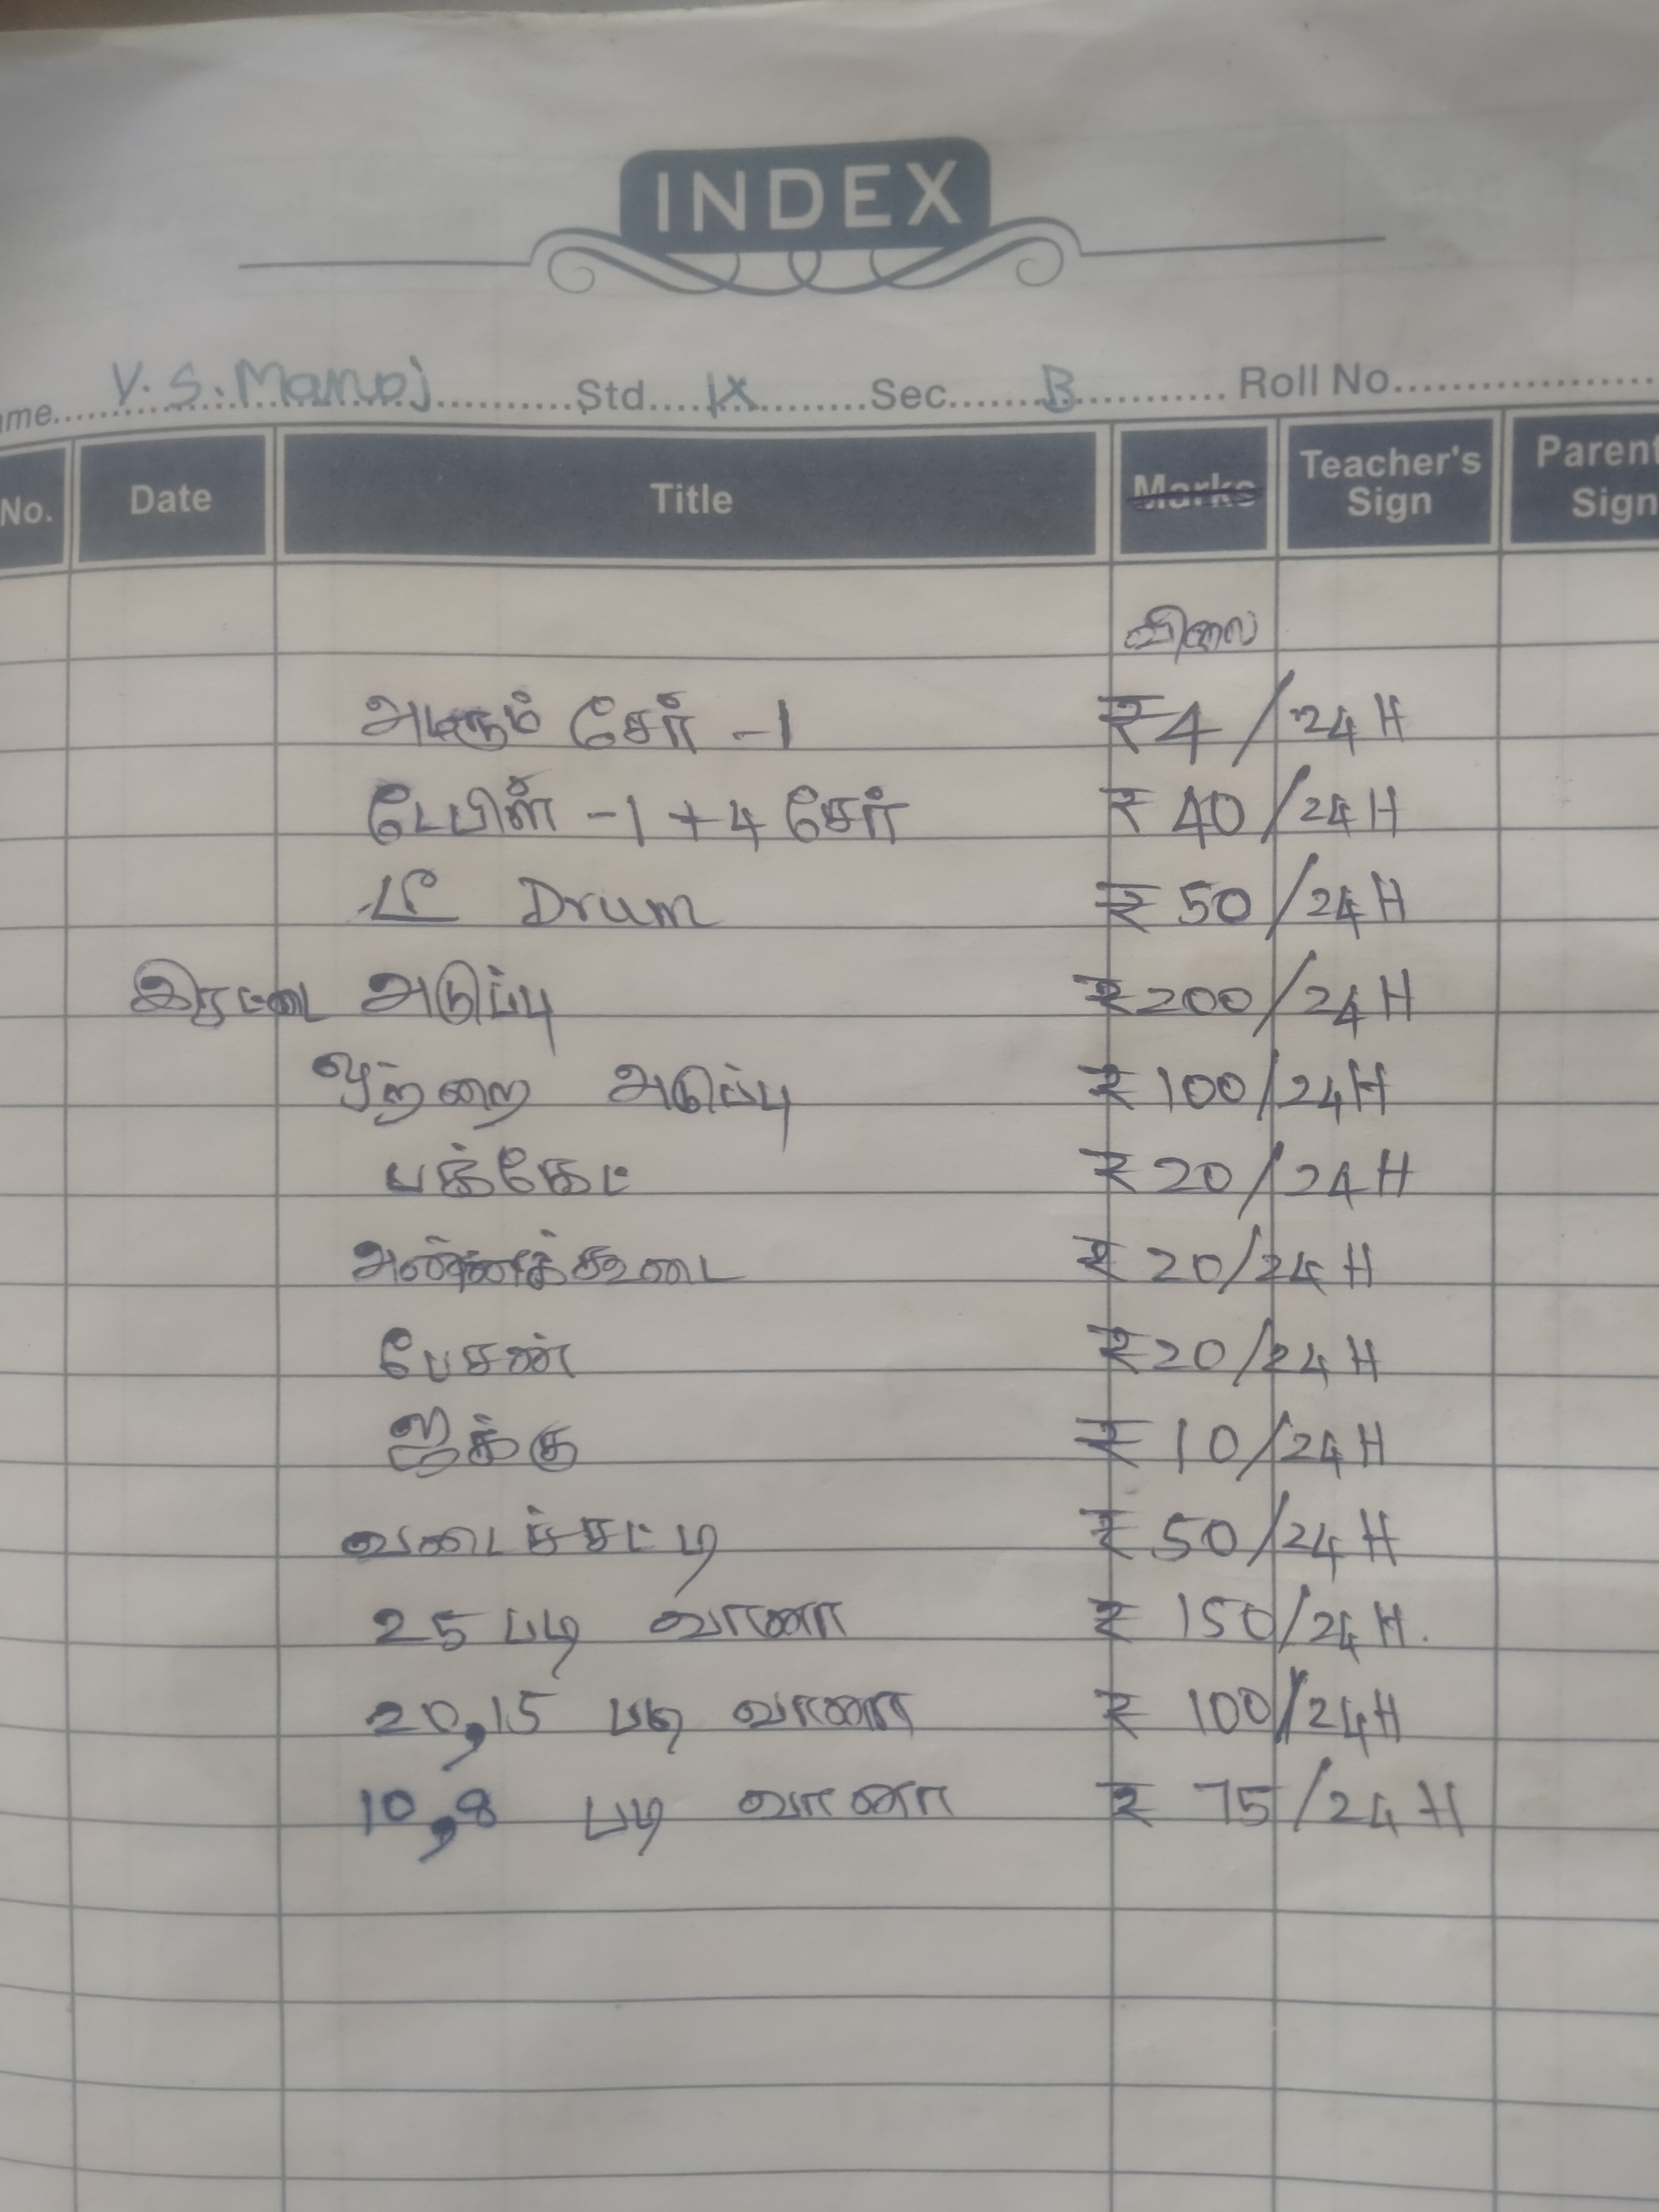 INDEX
ame.......V. S. Manoj..........Std....IX........Sec......B...........Roll No....................
No. Date Title Marks Teacher's Sign Parent Sign
விலை
சேர் -1 ₹ 4/24 H
டேபிள் -1 + 4 சேர் ₹ 40/24 H
டீ Drum ₹ 50/24 H
இரட்டை அடுப்பு ₹ 200/24 H
ஒற்றை அடுப்பு ₹ 100/24 H
பக்கெட் ₹ 20/24 H
அன்னக்கூடை ₹ 20/24 H
பேசன் ₹ 20/24 H
ஜக்கு ₹ 10/24 H
வடைச்சட்டி ₹ 50/24 H
25 படி வாணா ₹ 150/24 H.
20,15 படி வாணா ₹ 100/24 H
10,8 படி வாணா ₹ 75/24 H